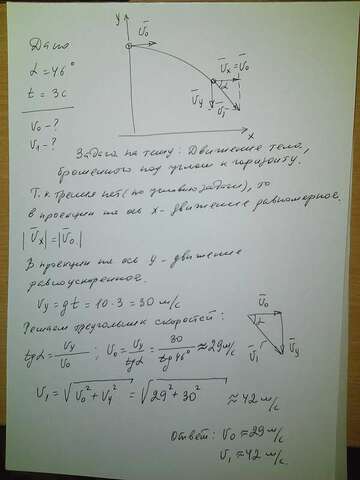 Дано
α = 46°
t = 3с
V₀ - ?
V₁ - ?
y
V̄₀
V̄ₓ = V̄₀
α
V̄y
V̄₁
x
Задача на тему: Движение тела,
брошенного под углом к горизонту.
Т. к трения нет (по условию задачи), то
в проекции на ось x - движение равномерное.
|V̄ₓ| = |V̄₀|
В проекции на ось y - движение
равноускоренное.
Vy = gt = 10 · 3 = 30 м/с
Решаем треугольник скоростей:
V̄₀
α
V̄₁
V̄y
tgα = Vy/V₀ ; V₀ = Vy/tgα = 30/tg46° ≈ 29 м/с
V₁ = √(V₀² + Vy²) = √(29² + 30²) ≈ 42 м/с
Ответ: V₀ ≈ 29 м/с
V₁ ≈ 42 м/с